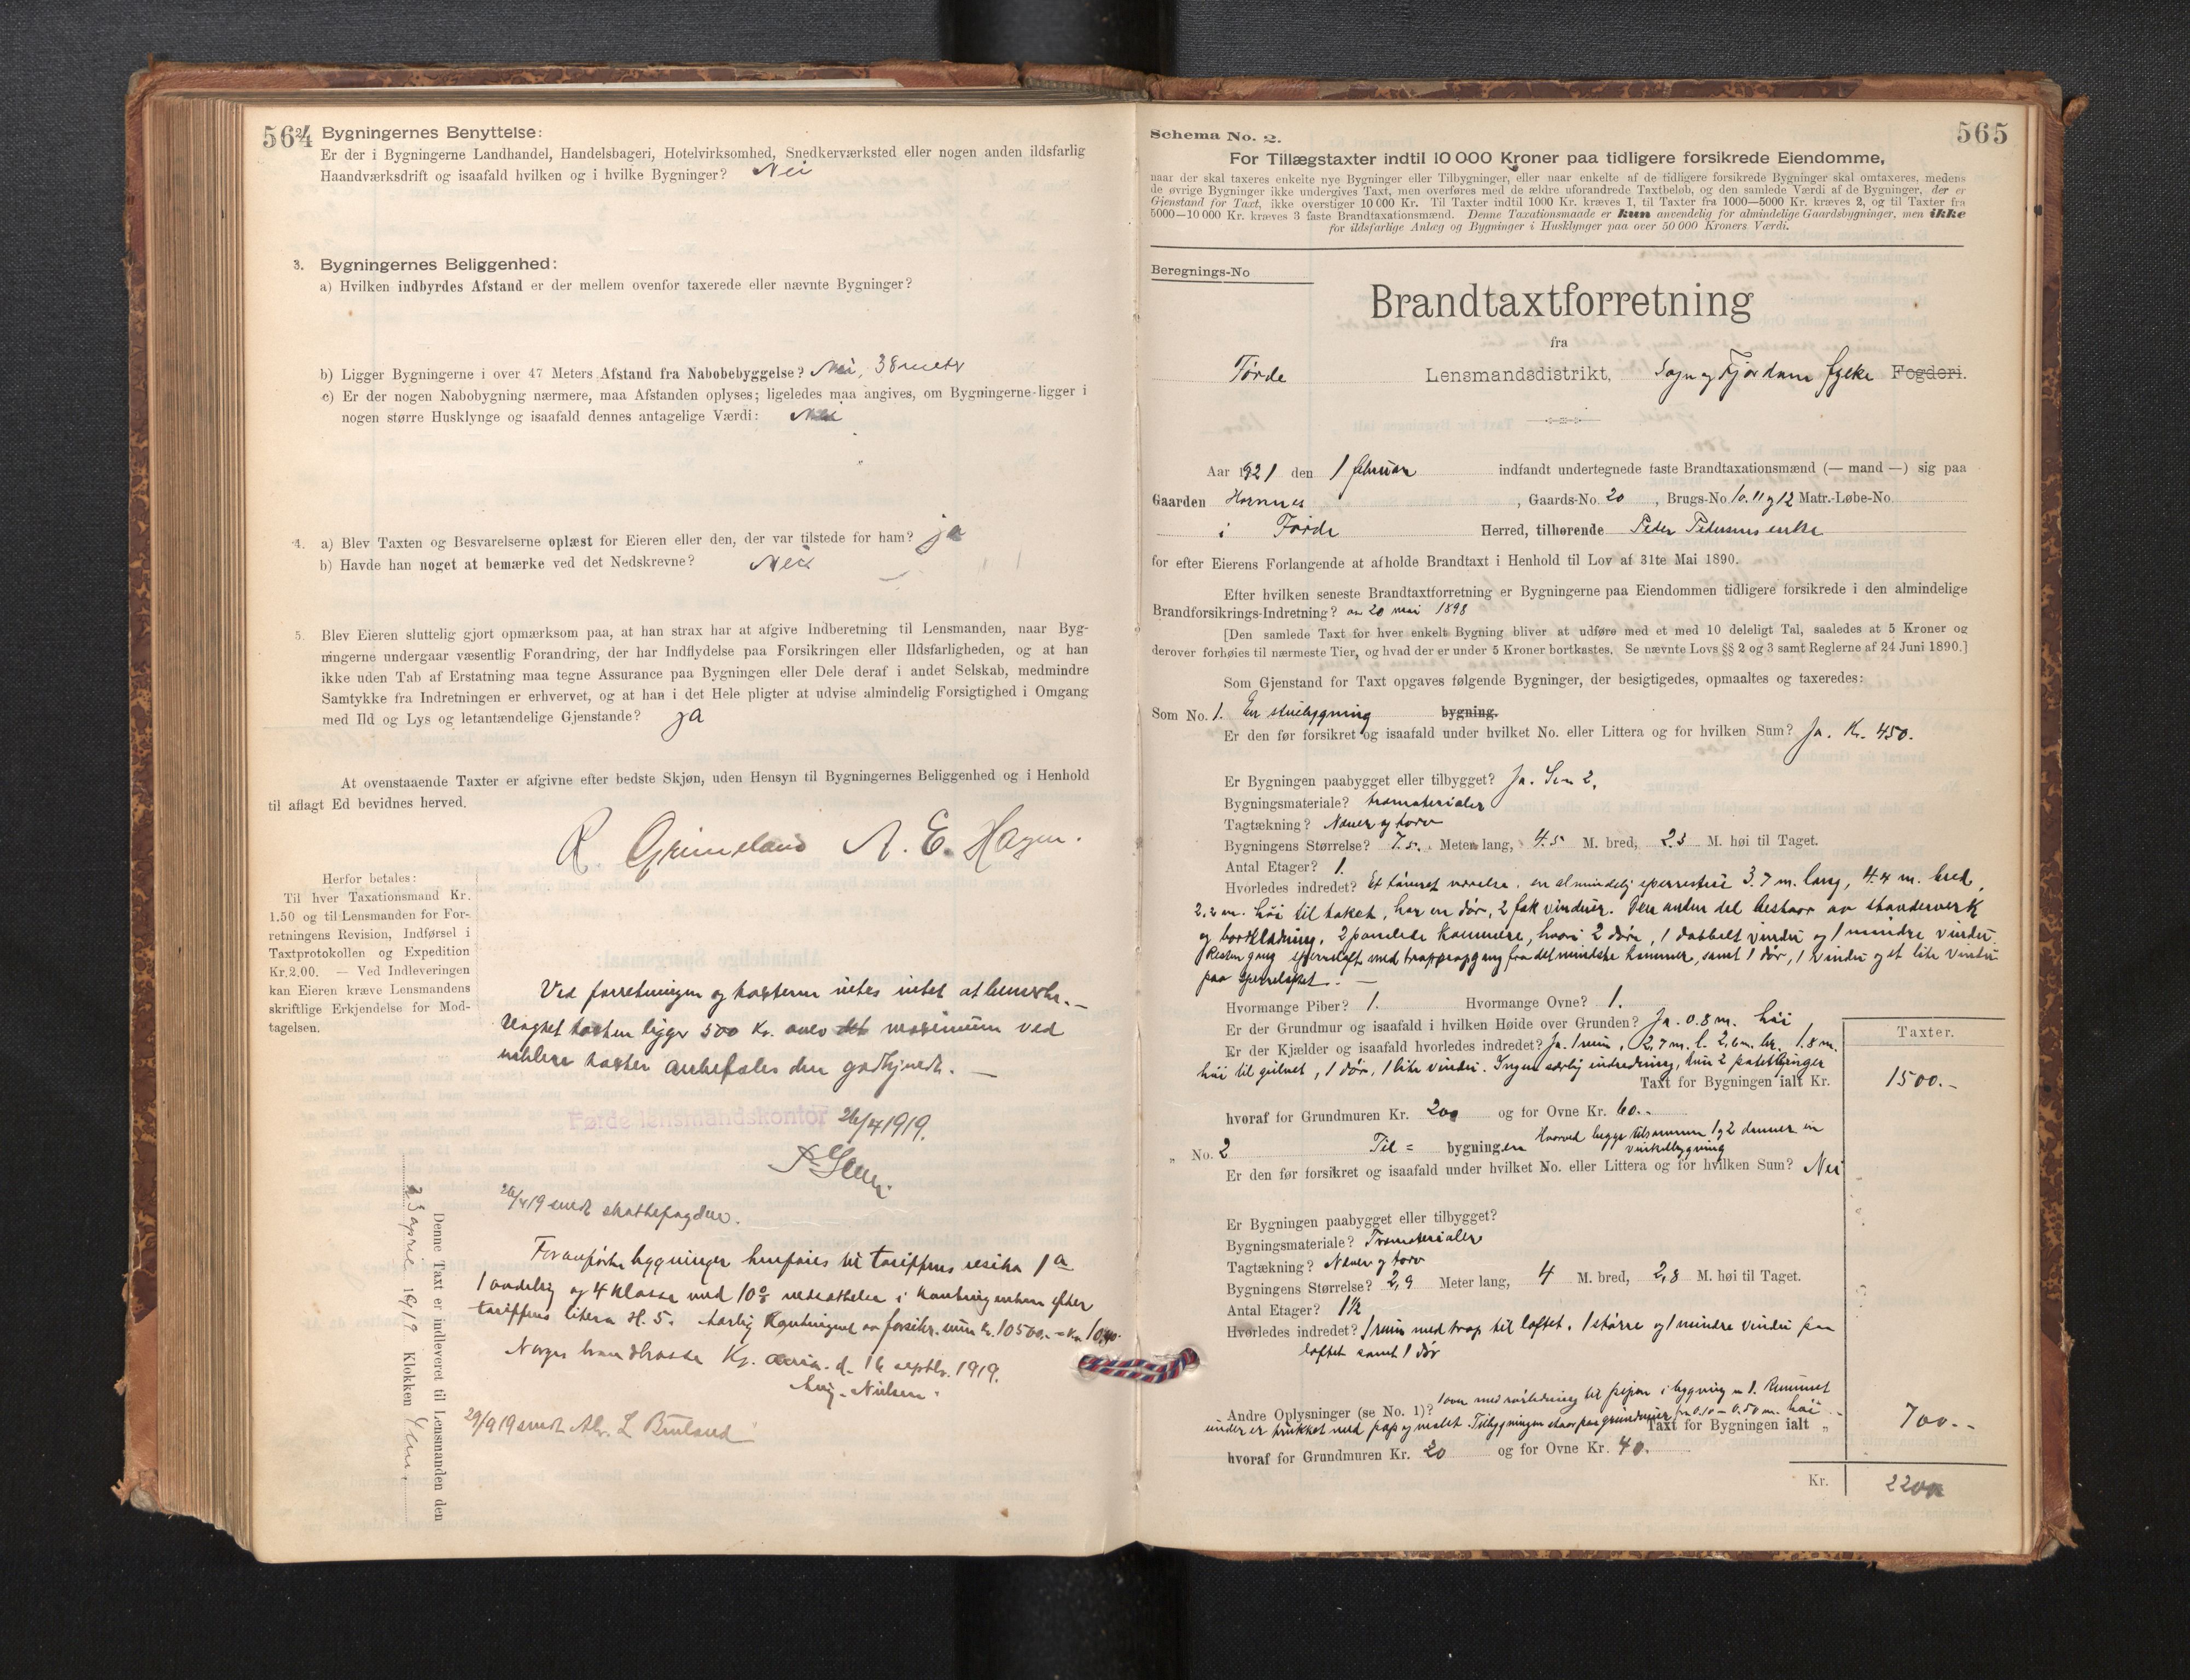 564
Bygningernes Benyttelse:
Er der i Bygningerne Landhandel, Handelsbageri, Hotelvirksomhed, Snedkerværksted eller nogen anden ildsfarlig
Haandværksdrift og isaafald hvilken og i hvilke Bygninger? Nei
3. Bygningernes Beliggenhed:
a) Hvilken indbyrdes Afstand er der mellem ovenfor taxerede eller nævnte Bygninger?
b) Ligger Bygningerne i over 47 Meters Afstand fra Nabobebyggelse? Nei, 38 meter
c) Er der nogen Nabobygning nærmere, maa Afstanden oplyses; ligeledes maa angives, om Bygningerne ligger i
nogen større Husklynge og isaafald dennes antagelige Værdi: Nei
4. a) Blev Taxten og Besvarelserne oplæst for Eieren eller den, der var tilstede for ham? ja
b) Havde han noget at bemærke ved det Nedskrevne? Nei
5. Blev Eieren sluttelig gjort opmærksom paa, at han strax har at afgive Indberetning til Lensmanden, naar Byg-
ningerne undergaar væsentlig Forandring, der har Indflydelse paa Forsikringen eller Ildsfarligheden, og at han
ikke uden Tab af Erstatning maa tegne Assurance paa Bygningen eller Dele deraf i andet Selskab, medmindre
Samtykke fra Indretningen er erhvervet, og at han i det Hele pligter at udvise almindelig Forsigtighed i Omgang
med Ild og Lys og letantændelige Gjenstande? ja
At ovenstaaende Taxter er afgivne efter bedste Skjøn, uden Hensyn til Bygningernes Beliggenhed og i Henhold
til aflagt Ed bevidnes herved.
R. Grimeland A. E. Hagen.
Herfor betales:
Til hver Taxationsmand Kr.
1.50 og til Lensmanden for For-
retningens Revision, Indførsel i
Taxtprotokollen og Expedition
Kr. 2.00. — Ved Indleveringen
kan Eieren kræve Lensmandens
skriftlige Erkjendelse for Mod-
tagelsen.
Ved forretningen og taksterne vites intet at bemerke. —
Uagtet taksten ligger 500 Kr. over det maximum ved
enklere takster anbefales den godkjendt. —
Førde lensmandskontor 26/4 1919.
26/4 19 sendt skattefogden.
Foranførte bygninger henføres til tariffens risiko 1a
1 avdeling og 4 klasse med 10% nedsættelse i kontingenten efter
tariffens litera H. 5. Aarlig kontingent av forsikr. sum kr. 10500.- = Kr. 10,40.
Norges brandkasse Kr.ania. d. 16 septbr. 1919.
Aug. Nielsen.
29/9 19 sendt
Denne Taxt er indleveret til Lensmanden den
23 april 1919 Klokken 4 em.
565
Schema No. 2.
For Tillægstaxter indtil 10 000 Kroner paa tidligere forsikrede Eiendomme,
naar der skal taxeres enkelte nye Bygninger eller Tilbygninger, eller naar enkelte af de tidligere forsikrede Bygninger skal omtaxeres, medens
de øvrige Bygninger ikke undergives Taxt, men overføres med de ældre uforandrede Taxtbeløb, og den samlede Værdi af de Bygninger, der er
Gjenstand for Taxt, ikke overstiger 10 000 Kr. Til Taxter indtil 1000 Kr. kræves 1, til Taxter fra 1000—5000 Kr. kræves 2, og til Taxter fra
5000—10 000 Kr. kræves 3 faste Brandtaxationsmænd. Denne Taxationsmaade er kun anvendelig for almindelige Gaardsbygninger, men ikke
for ildsfarlige Anlæg og Bygninger i Husklynger paa over 50 000 Kroners Værdi.
Beregnings-No
Brandtaxtforretning
fra
Førde Lensmandsdistrikt, Sogn og Fjordane fylke Fogderi.
Aar 1921 den 1 februar indfandt undertegnede faste Brandtaxationsmænd (— mand —) sig paa
Gaarden Hornnes, Gaards-No. 20, Brugs-No 10. 11 og 12 Matr.-Løbe-No.
i Førde Herred, tilhørende Peder Pedersens enke
for efter Eierens Forlangende at afholde Brandtaxt i Henhold til Lov af 31te Mai 1890.
Efter hvilken seneste Brandtaxtforretning er Bygningerne paa Eiendommen tidligere forsikrede i den almindelige
Brandforsikrings-Indretning? av 20 mai 1898
[Den samlede Taxt for hver enkelt Bygning bliver at udføre med et med 10 deleligt Tal, saaledes at 5 Kroner og
derover forhøies til nærmeste Tier, og hvad der er under 5 Kroner bortkastes. Se nævnte Lovs §§ 2 og 3 samt Reglerne af 24 Juni 1890.]
Som Gjenstand for Taxt opgaves følgende Bygninger, der besigtigedes, opmaaltes og taxeredes:
Som No. 1. En stuebygning bygning.
Er den før forsikret og isaafald under hvilket No. eller Littera og for hvilken Sum? Ja. Kr. 450.
Er Bygningen paabygget eller tilbygget? Ja. Se no 2.
Bygningsmateriale? træmaterialer
Tagtækning? Næver og torv
Bygningens Størrelse? 7.5. Meter lang, 4.5 M. bred, 2.3 M. høi til Taget.
Antal Etager? 1.
Hvorledes indredet? Et tømret værelse, en almindelig sperrestue 3.7 m. lang, 4.4 m. bred,
2,2 m. høi til taket, har en dør, 2 fak vinduer. Den anden del bestaar av standerverk
og bordklædning. 2 panelede kammere, hvori 2 døre, 1 dobbelt vindu og 1 mindre vindu.
Resten gang sperreloft med trappeopgang fra det mindste kammer, samt 1 dør, 1 vindu og et lite vindu
paa sperreloftet. —
Hvormange Piber? 1. Hvormange Ovne? 1.
Er der Grundmur og isaafald i hvilken Høide over Grunden? Ja. 0.8 m. høi
Er der Kjælder og isaafald hvorledes indredet? Ja. 1 rum, 2,7 m. l. 2,6 m. br. 1.8 m.
høi til gulvet, 1 dør, 1 lite vindu. Ingen særlig indredning, kun 2 potetbinger
Taxter.
Taxt for Bygningen ialt Kr. 1500.-
hvoraf for Grundmuren Kr. 200 og for Ovne Kr. 60.-
„ No. 2 Til = bygningen Hvorved begge tilsammen 1 og 2 danner en
vinkelbygning
Er den før forsikret og isaafald under hvilket No. eller Littera og for hvilken Sum? Nei
Er Bygningen paabygget eller tilbygget?
Bygningsmateriale? Træmaterialer
Tagtækning? Næver og torv
Bygningens Størrelse? 2,9 Meter lang, 4 M. bred, 2,8 M. høi til Taget.
Antal Etager? 1½
Hvorledes indredet? 1 rum med trap til loftet. 1 større og 1 mindre vindu paa
loftet samt 1 dør
Andre Oplysninger (se No. 1)? 1 ovn med rørledning til pipen i bygning n 1. Rummet
under er trukket med pap og malet. Tilbygningen staar paa grundmur fra 0.10 - 0.50 m. høi
Taxt for Bygningen ialt „ 700.-
hvoraf for Grundmuren Kr. 20 og for Ovne Kr. 40.
Kr. 2200